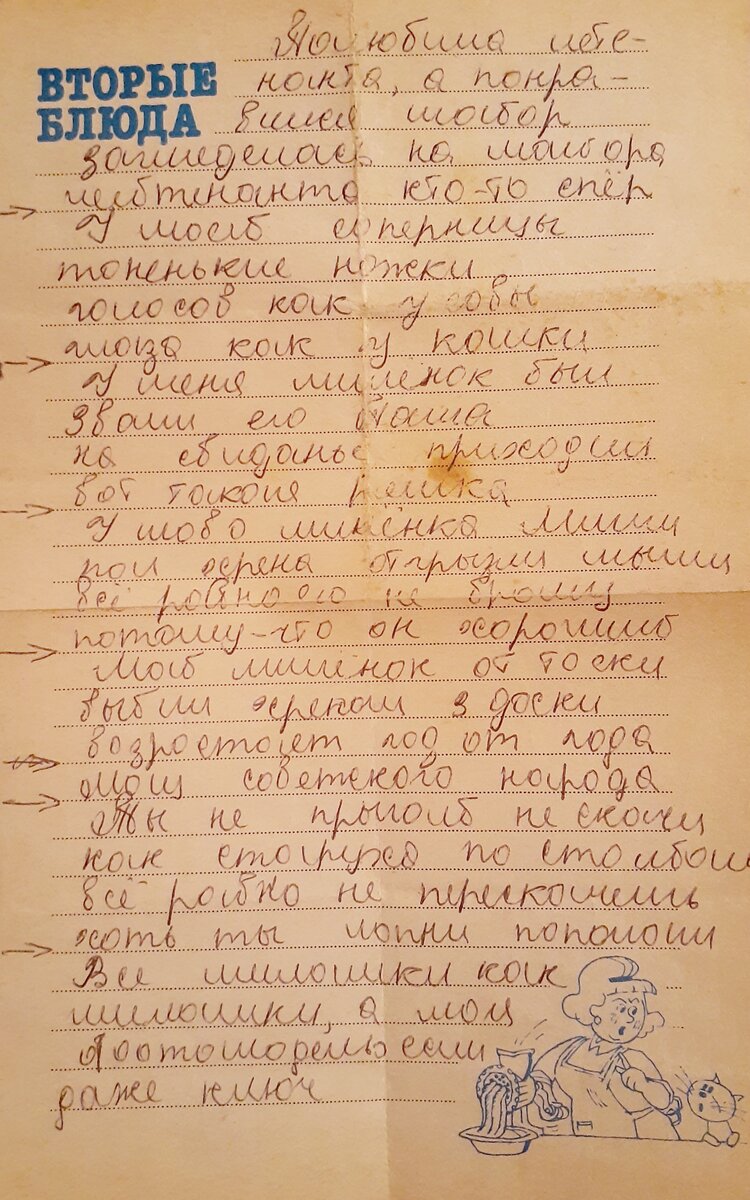 Полюбила лете-
ВТОРЫЕ
БЛЮДА
нанта, а понра-
вился майор
загляделась на майора
лейтенанта кто-то спёр
У моей соперницы
тоненькие ножки
голосов как у совы
глаза как у кошки
У меня милёнок был
Звали его Паша
на свиданье приходил
вот такая ряшка
У мово милёнка Миши
пол хрена отгрызли мыши
всё равно его не брошу
потому-что он хороший
Мой милёнок от тоски
выбил хреном 3 доски
возростает год от года
мощ советского народа
Ты не прыгай не скачи
как старуха по столбам
всё равно не перескочешь
хоть ты лопни пополам
Все милашки как
милашки, а мой
даже ключ